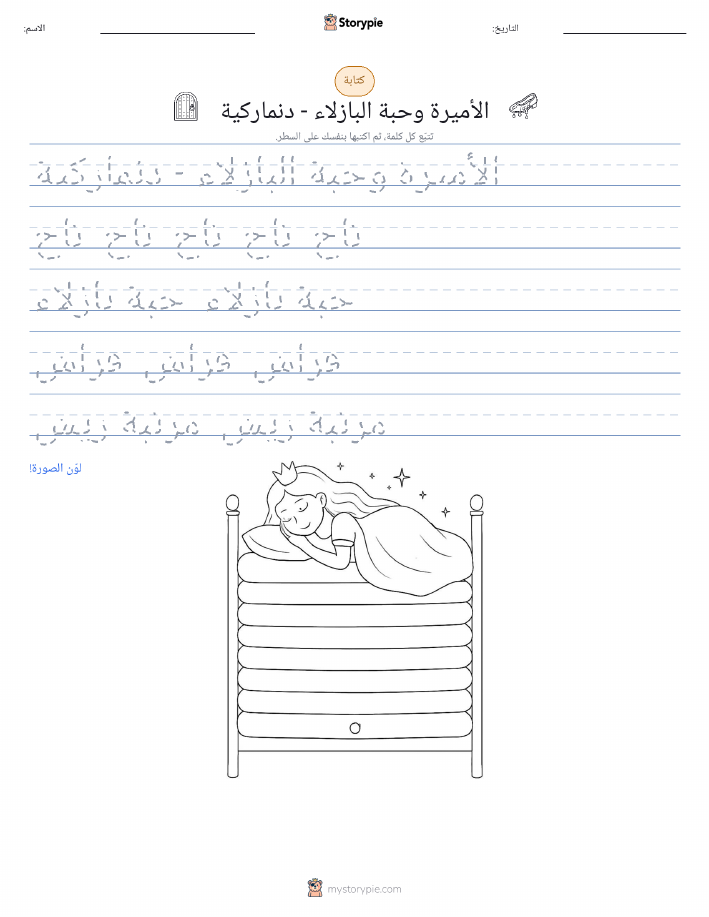 Storypie
التاريخ:
الاسم:
كتابة
الأميرة وحبة البازلاء - دنماركية
تتبّع كل كلمة، ثم اكتبها بنفسك على السطر.
الأميرة وحبة البازلاء - دنماركية
تاج تاج تاج تاج تاج
حبة بازلاء حبة بازلاء
فراش فراش فراش
مرتبة ريش مرتبة ريش
لوّن الصورة!
mystorypie.com